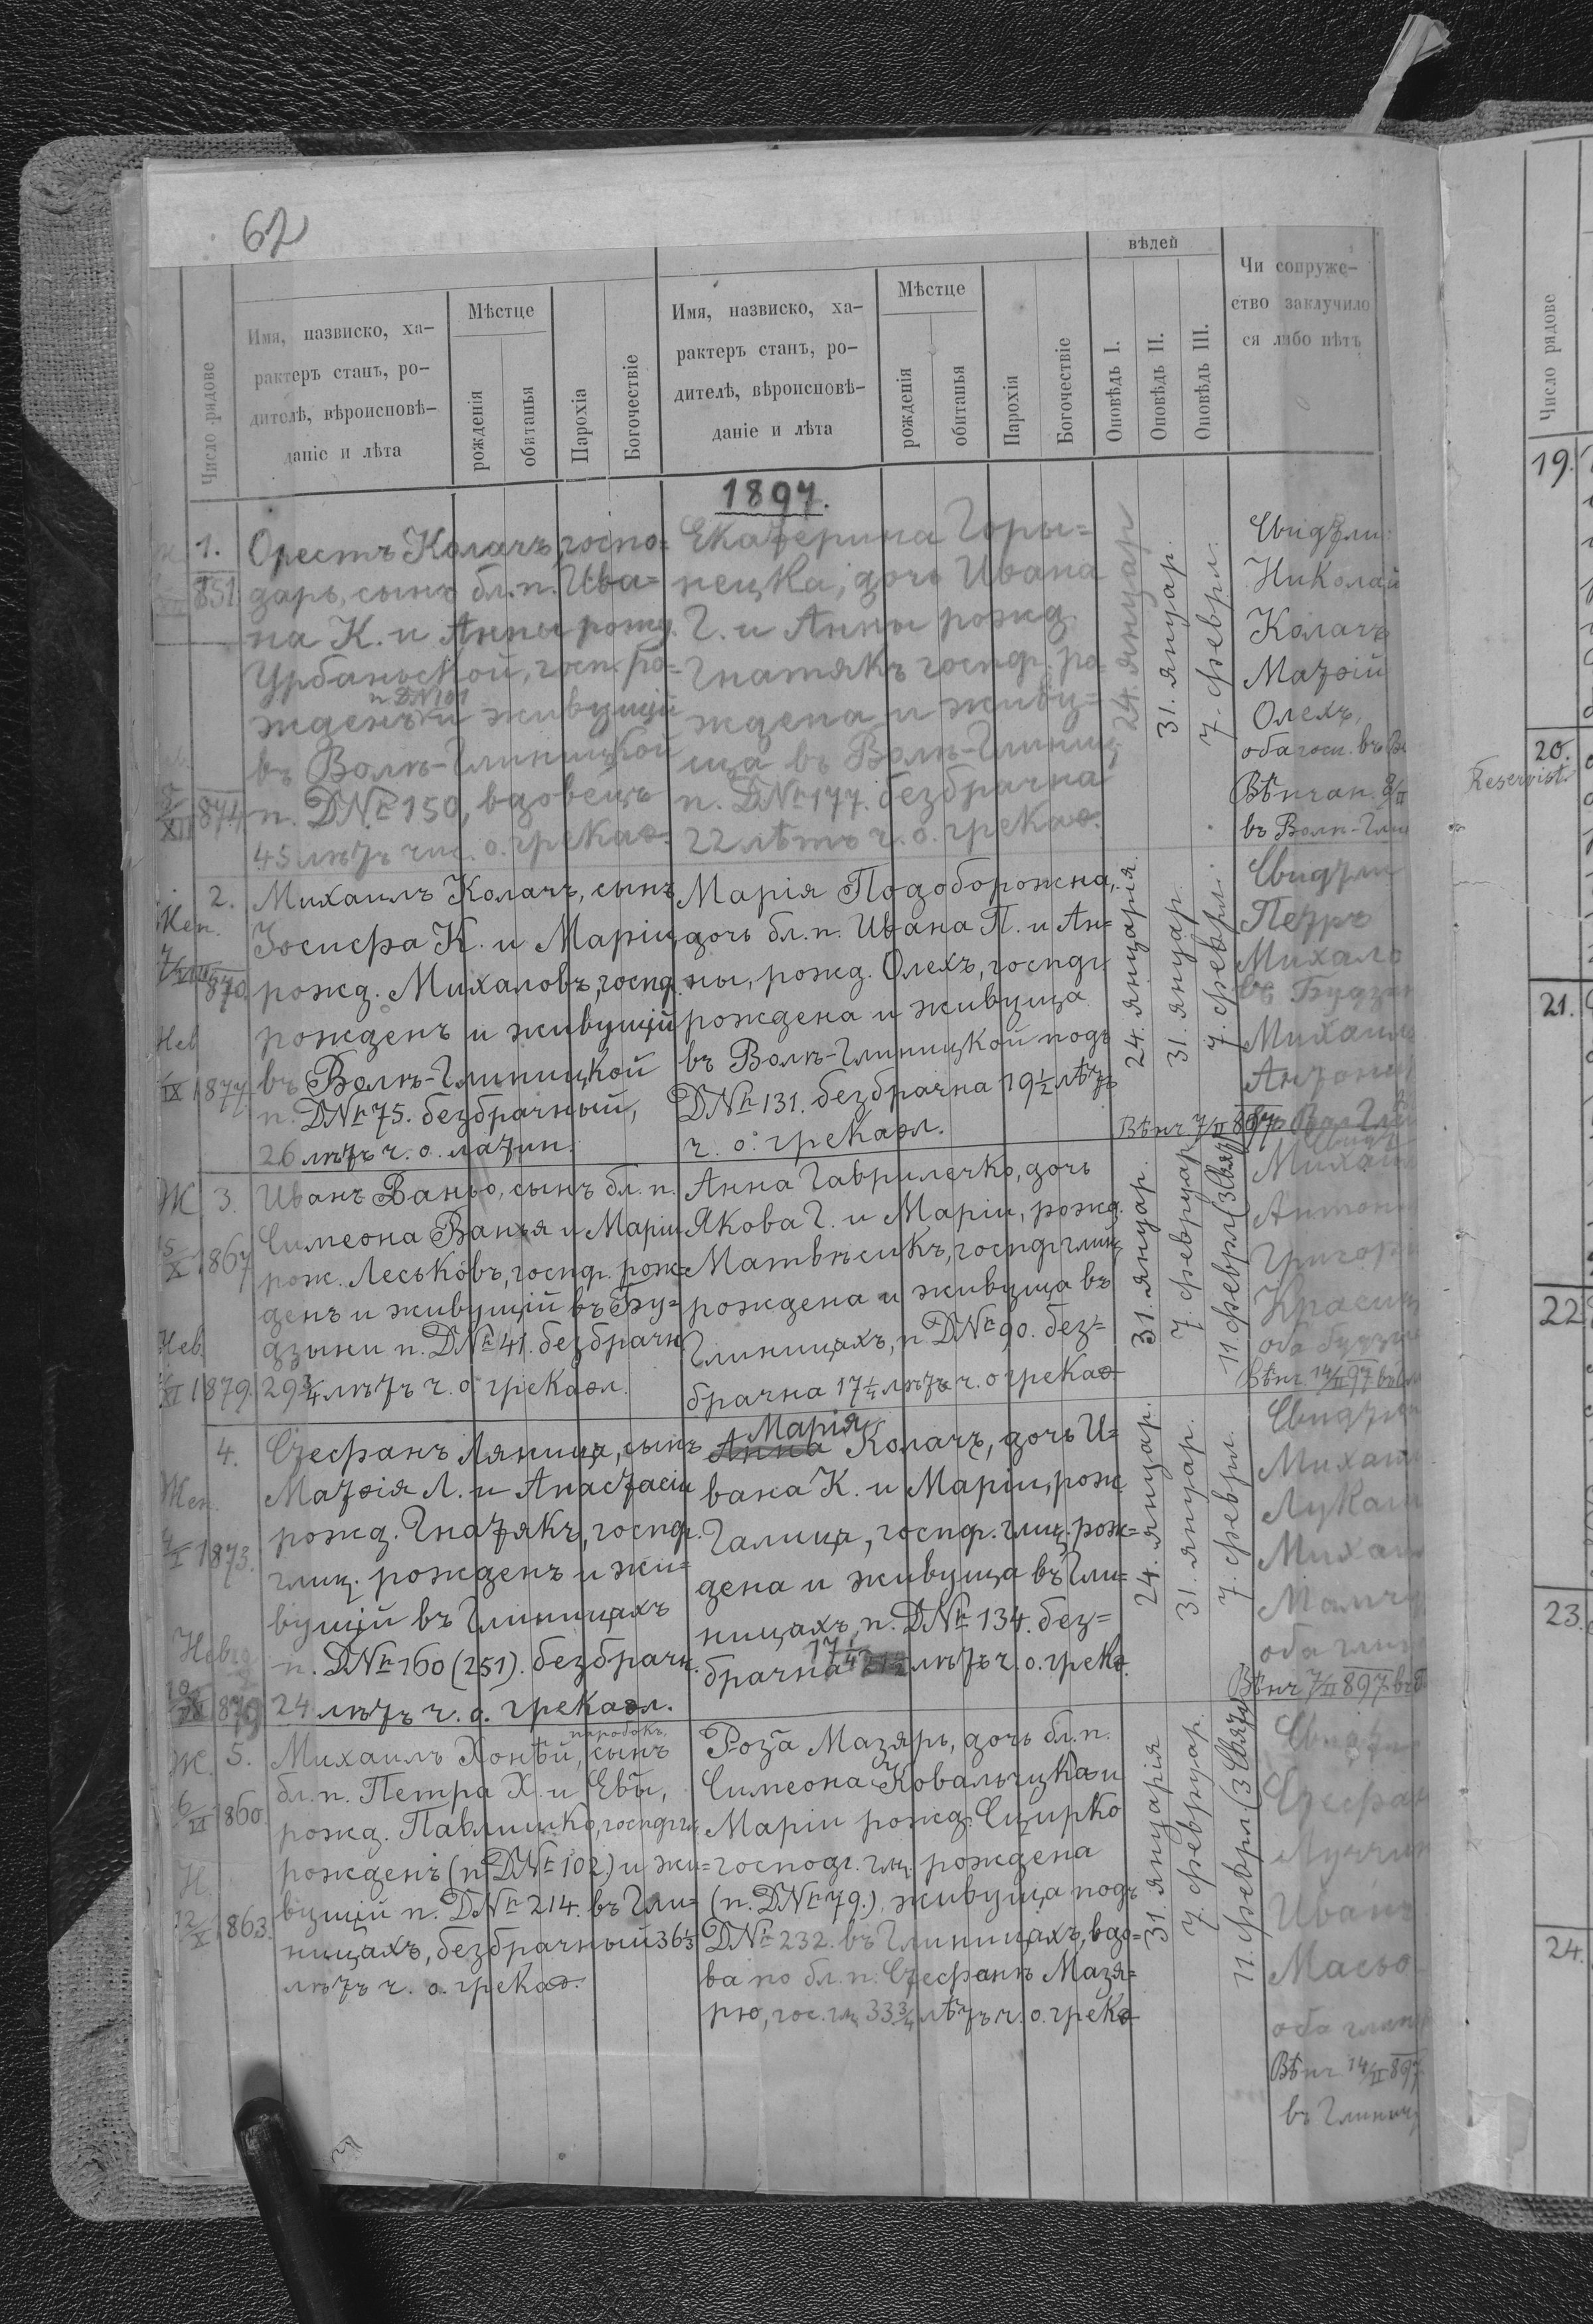 62
вѣдей
Число рядове
Имя, назвиско, ха-
рактеръ станъ, ро-
дителѣ, вѣроисповѣ-
даніе и лѣта
Мѣстце
рожденія
обитанья
Парохія
Богочествіе
Имя, назвиско, ха-
рактеръ станъ, ро-
дителѣ, вѣроисповѣ-
даніе и лѣта
Мѣстце
рожденія
обитанья
Парохія
Богочествіе
Оповѣдь I.
Оповѣдь II.
Оповѣдь III.
Чи сопруже-
ство заключило
ся либо нѣтъ
1897.
1.
851
874
Орестъ Колачъ, госпо=
дарь, сынъ бл. п. Ива=
на К. и Анны рожд.
Урбаньской, госп. ро=
п DN 101
жденъ и живущій
въ Волѣ-Глиницкой
п. DNr 150, вдовецъ
45 лѣтъ ч. о. грекаѳ.
Екатерина Горы=
нецка, дочь Ивана
Г. и Анны рожд.
Гнатякъ госпд. ро
ждена и живу=
ща въ Волѣ-Глиниц
п. DNr 177. безбрачна
22 лѣтъ ч. о. грекаѳ.
24. януар
31. януар.
7. феврл.
Свидѣли:
Николай
Колачъ
Матѳій
Олехъ,
оба госп. въ В
Вѣнчан. 8/II
въ Волѣ-Гли
2.
Жен.
7/VIII 870.
Нев
IX 1877
Михаилъ Колачъ, сынъ
Іосифа К. и Маріи
рожд. Михаловъ, госпд.
рожденъ и живущій
въ Волѣ-Глиницкой
п. DNr 75. безбрачный,
26 лѣтъ ч. о. латин.
Марія Подоборожна,
дочь бл. п. Ивана П. и Ан=
ны, рожд. Олехъ, госпдг.
рождена и живуща
въ Волѣ-Глиницкой подъ
DNr 131. безбрачна 19 1/2 лѣтъ
ч. о. грекаѳл.
24. януарія
31. януар.
7. феврл.
Свидѣли
Петръ
Михало
Михаилъ
Вѣнч 7/II 897
Ж 3.
5/X 1867
Нев.
XI 1879.
Иванъ Ваньо, сынъ бл. п.
Симеона Ванья и Маріи
рож. Леськовъ, госпдг. рож=
денъ и живущій въ Бу=
дзыни п. DNr 41. безбрачн
29 3/4 лѣтъ ч. о грекаѳл.
Анна Гаврилечко, дочь
Якова Г. и Маріи, рожд.
Матвѣсикъ, госпдг глиц
рождена и живуща въ
Глиницахъ, п DNr 90. без=
брачна 17 1/4 лѣтъ ч. о грекаѳ
31. януар.
7. февруар
11. феврл (3 Свят
Антон
Григорі
Вѣнч. 14/II 97
4.
Жен.
4/I 1873.
Стефанъ Ляница, сынъ
Матѳія Л. и Анастасіи
рожд. Гнатякъ, госпдг.
глиц. рожденъ и жи=
вущій въ Глиницахъ
п. DNr 160 (251). безбрачн.
24 лѣтъ ч. о. грекаѳл.
Марія
Анна Колачъ, дочь И=
вана К. и Маріи, рож
Галица, госпдг. глиц. рож=
дена и живуща въ Гли=
ницахъ, п. DNr 134. без=
брачна 17 1/4 лѣтъ ч. о. грекѳ.
24. януар.
31. януар.
7. феврл.
Свидѣли
Михаил
Лукаш
Михаил
оба глин
Вѣнч 7/II 897.
Ж. 5.
6/XI 1860.
Н.
12/X 1863.
паробокъ
Михаилъ Хонѣй, сынъ
бл. п. Петра Х. и Евы,
рожд. Павлишко, госпдг гл.
рожденъ (п. DNr 102) и жи=
вущій п. DNr 214. въ Гли=
ницахъ, безбрачный 36 1/3
лѣтъ ч. о. грекаѳ.
Роза Мазяръ, дочь бл. п.
Симеона Ковальчука и
Маріи рожд. Сцирко
господг. глц. рождена
(п. DNr 79.), живуща подъ
DNr 232. въ Глиницахъ, вдо=
ва по бл. п. Стефанѣ Мазя=
рю, гос. глц 33 3/4 лѣтъ ч. о. грекѳ
31. януарія
7. февруар.
11. феврл. (3 Свят
Свидѣли
Стефан
Иванъ
Масьо
оба глин
Вѣнч 14/II 897
въ Глиниц
19.
20.
Reservist
21.
22
23.
24.
Число рядове